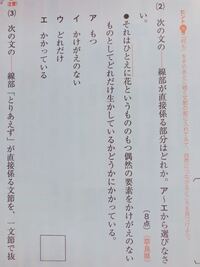 (2) 次の文の――線部が直接係る部分はどれか。ア～エから選びなさ
い。
(8点)
●それはひとえに花というもののもつ偶然の要素をかけがえのない
ものとしてどれだけ生かしているかどうかにかかっている。
ア もつ
イ かけがえのない
ウ どれだけ
エ かかっている
(3) 次の文の――線部「とりあえず」が直接係る文節を、一文節で抜